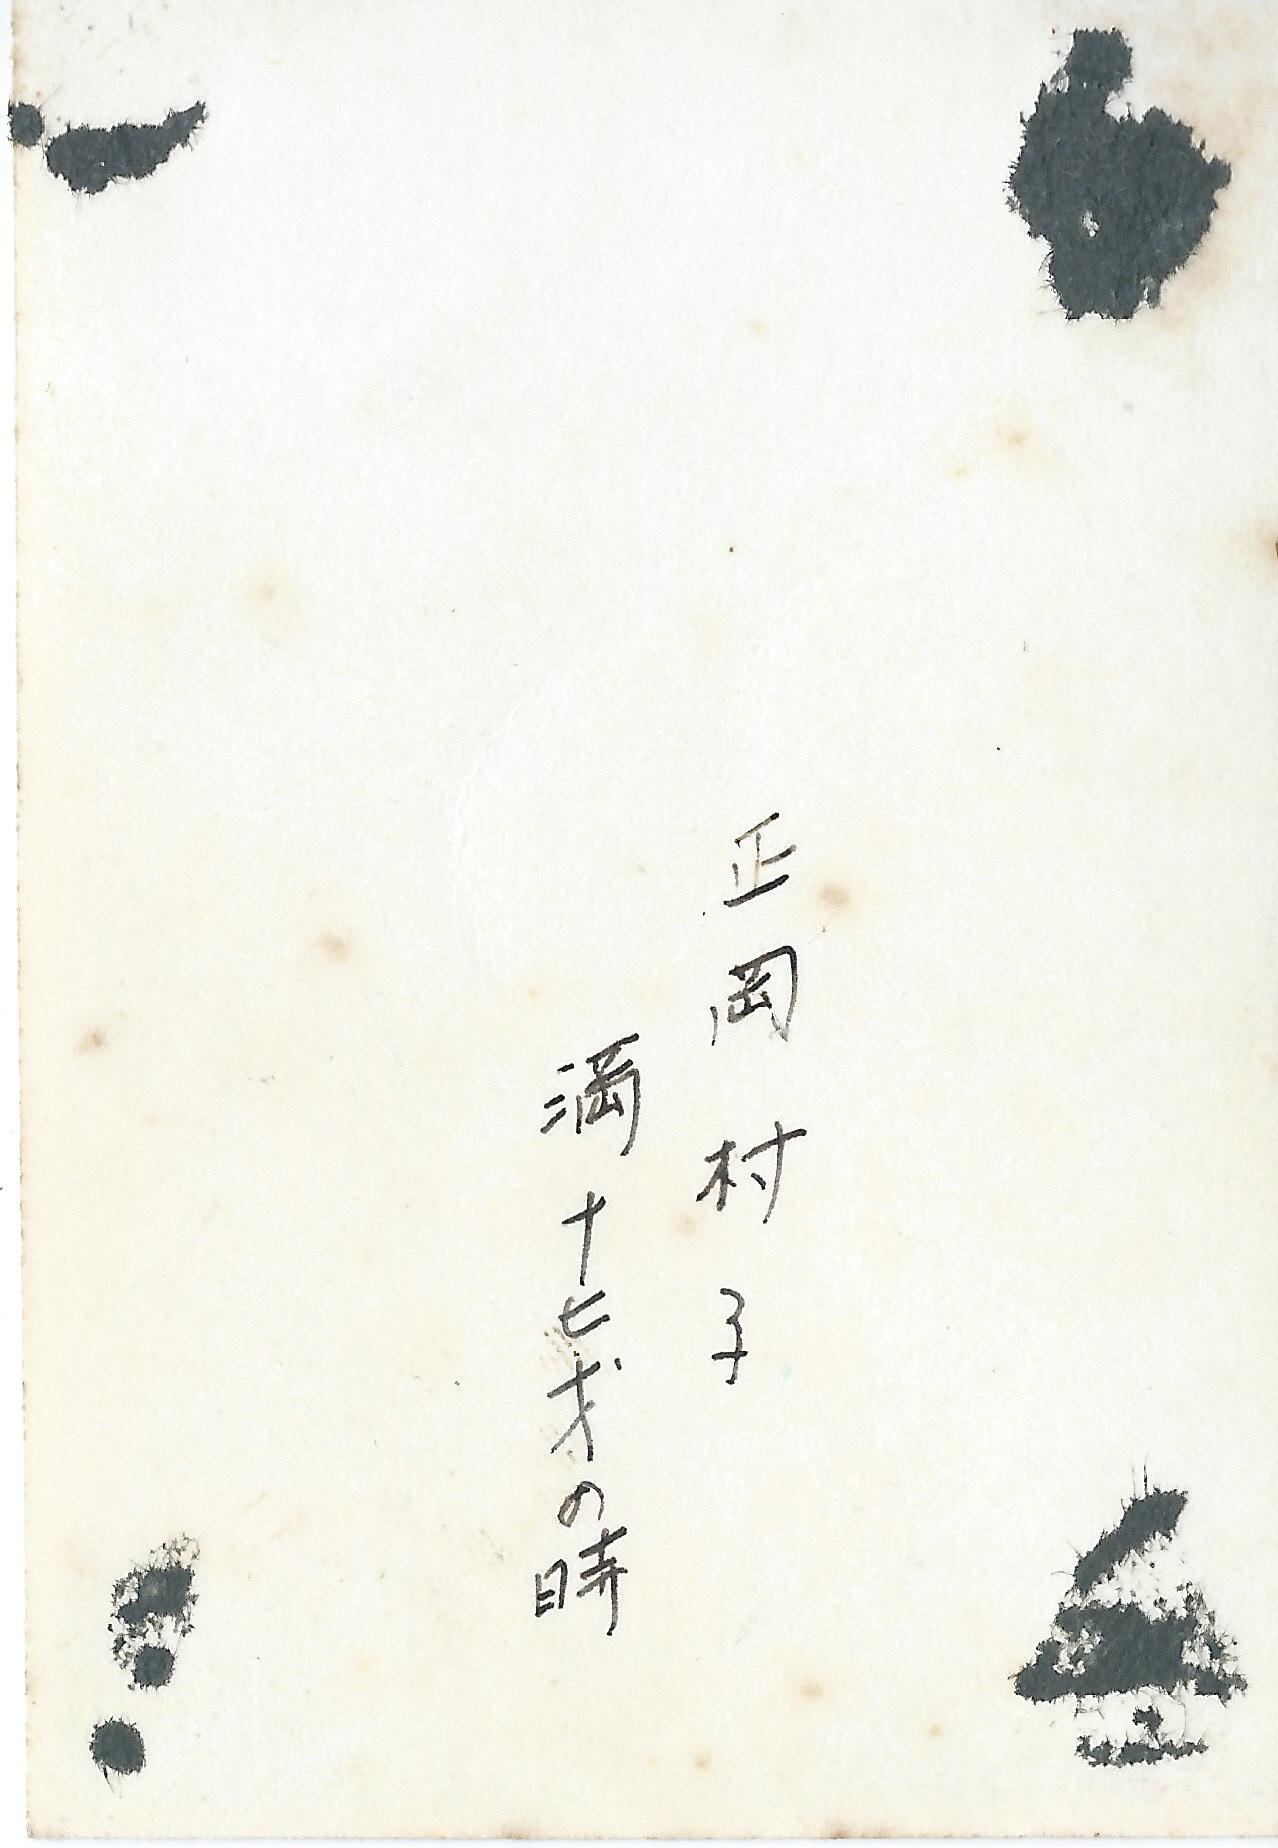 正岡村子
満十七才の時